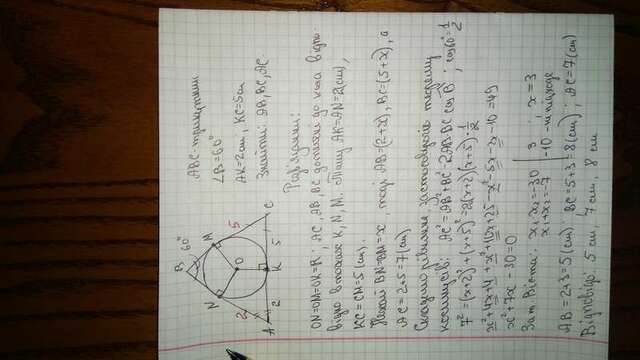 B
60°
N
M
2
O
5
A
2
K
5
C
ABC - трикутник
∠B = 60°
AK = 2 см, KC = 5 см
Знайти: AB, BC, AC
Розв'язання:
ON = OM = OK = R; AC, AB, BC дотичні до кола відпо-
відно в точках K, N, M. Тому AK = AN = 2 (см),
KC = CM = 5 (см).
Нехай BN = BM = x, тоді AB = (2+x), BC = (5+x), а
AC = 2+5 = 7 (см)
Складемо рівняння, застосовуючи теорему
косинусів: AC² = AB² + BC² - 2AB·BC cos B; cos 60° = 1/2
7² = (x+2)² + (x+5)² - 2(x+2)(x+5)·1/2
x² + 4x + 4 + x² + 10x + 25 - x² - 5x - 2x - 10 = 49
x² + 7x - 30 = 0
За т. Вієта: x₁·x₂ = -30 | 3 ; x = 3
x₁ + x₂ = -7 | -10 - не підходе
AB = 2+3 = 5 (см); BC = 5+3 = 8 (см); AC = 7 (см)
Відповідь: 5 см, 7 см, 8 см